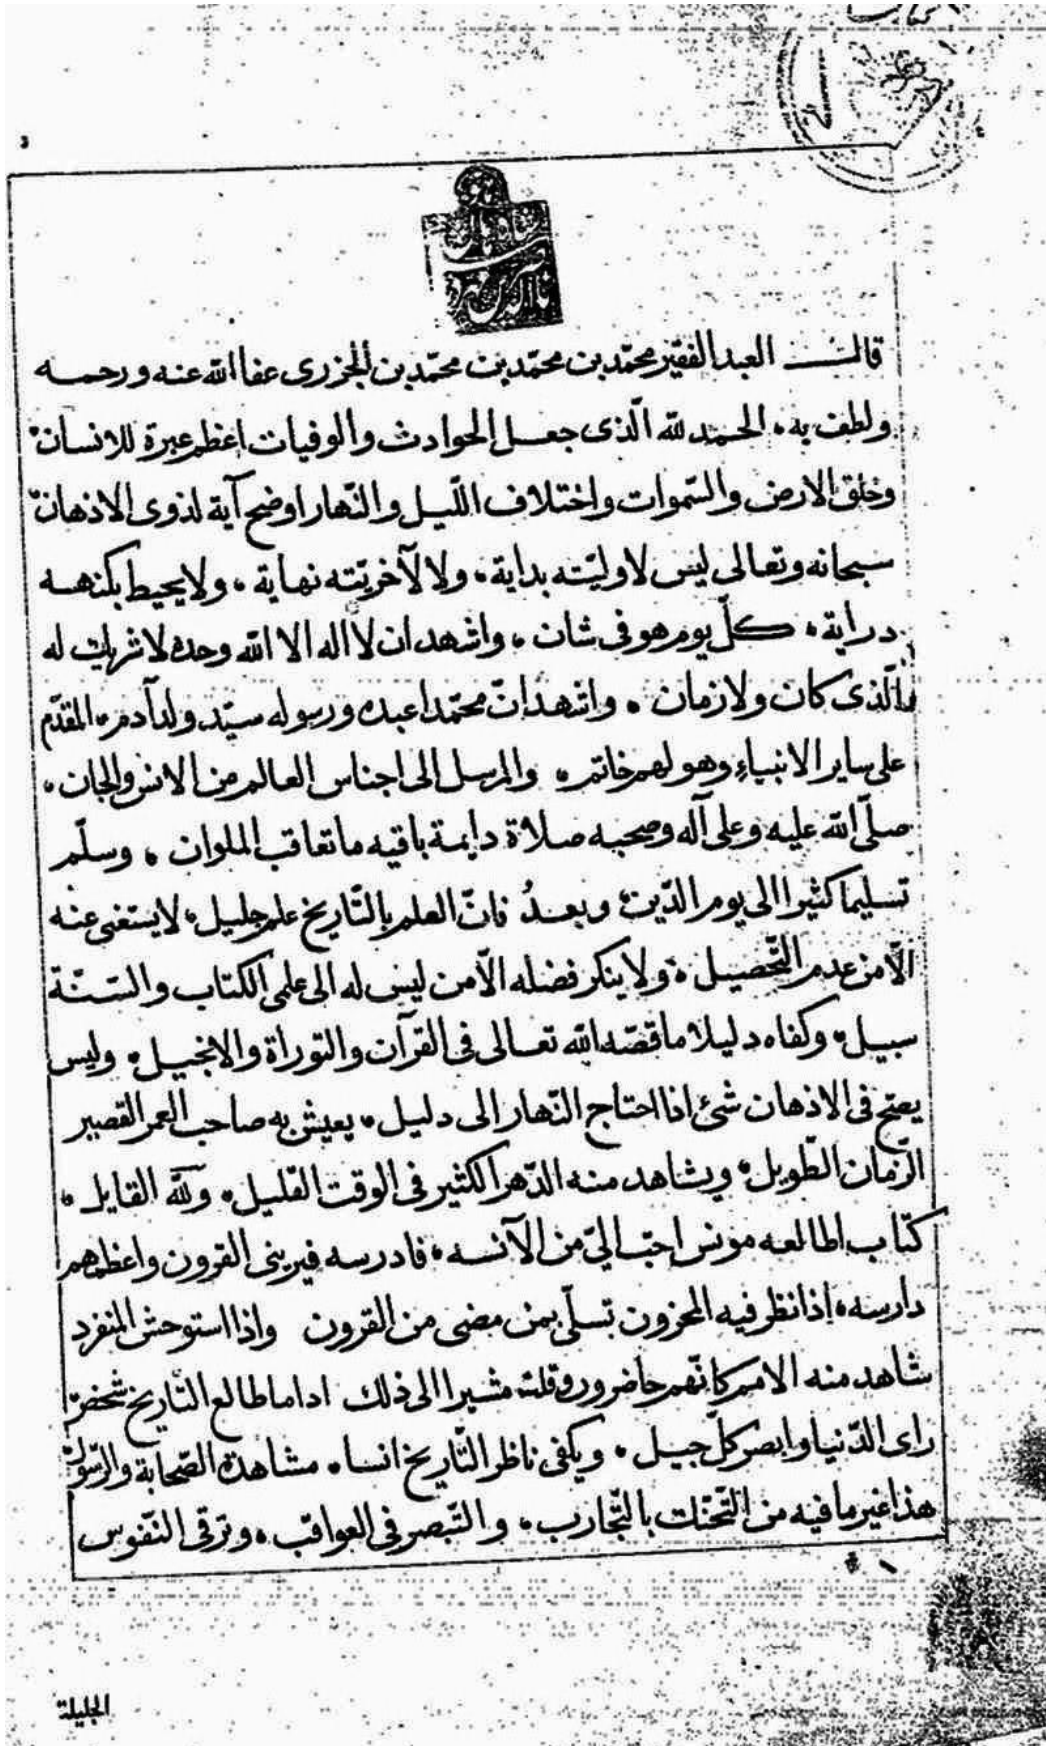 قال العبد الفقير محمّد بن محمّد بن محمّد بن الجزرى عفا الله عنه ورحمه
ولطف به، الحمد لله الّذى جعل الحوادث والوفيات اعظم عبرة للانسان
وخلق الارض والسّموات واختلاف اللّيل والنّهار اوضح آية لذوى الاذهان
سبحانه وتعالى ليس لاوليّته بداية، ولا لآخريّته نهاية، ولا يحيط بكنهه
دراية، كلّ يوم هو فى شان، واشهد ان لا اله الا الله وحده لا شريك له
الّذى كان ولا زمان، واشهد انّ محمّدا عبده ورسوله سيّد ولد آدم، المقدّم
على ساير الانبياء وهو لهم خاتم، والمرسل الى اجناس العالم من الانس والجان،
صلّى الله عليه وعلى آله وصحبه صلاة دايمة باقيه ما تعاقب الملوان، وسلّم
تسليما كثيرا الى يوم الدّين، وبعدُ فانّ العلم بالتّاريخ علم جليل، لا يستغنى عنه
الّا من عدم التّحصيل، ولا ينكر فضله الّا من ليس له الى علمى الكتاب والسّنّة
سبيل، وكفاه دليلا ما قصّه الله تعالى فى القرآن والتوراة والانجيل، وليس
يصحّ فى الاذهان شئ اذا احتاج النّهار الى دليل، يعيش به صاحب العمر القصير
الزّمان الطّويل، ويشاهد منه الدّهر الكثير فى الوقت القليل، ولله القايل،
كتاب اطالعه مونس احبّ الىّ من الآنسه، فادرسه فيرينى القرون واعظمهم
دارسه، اذا نظر فيه المحزون تسلّى بمن مضى من القرون واذا استوحش المنفرد
شاهد منه الامم كانّهم حاضرون وقلت مشيرا الى ذلك اذا ما طالع التّاريخ شخصّ
راى الدّنيا وابصر كلّ جيل، ويكفى ناظر التّاريخ انسا، مشاهدة الصّحابة والرّسول
هذا غير ما فيه من التّحنّك بالتّجارب، والتّبصر فى العواقب، وترقى النّفوس
الجليلة